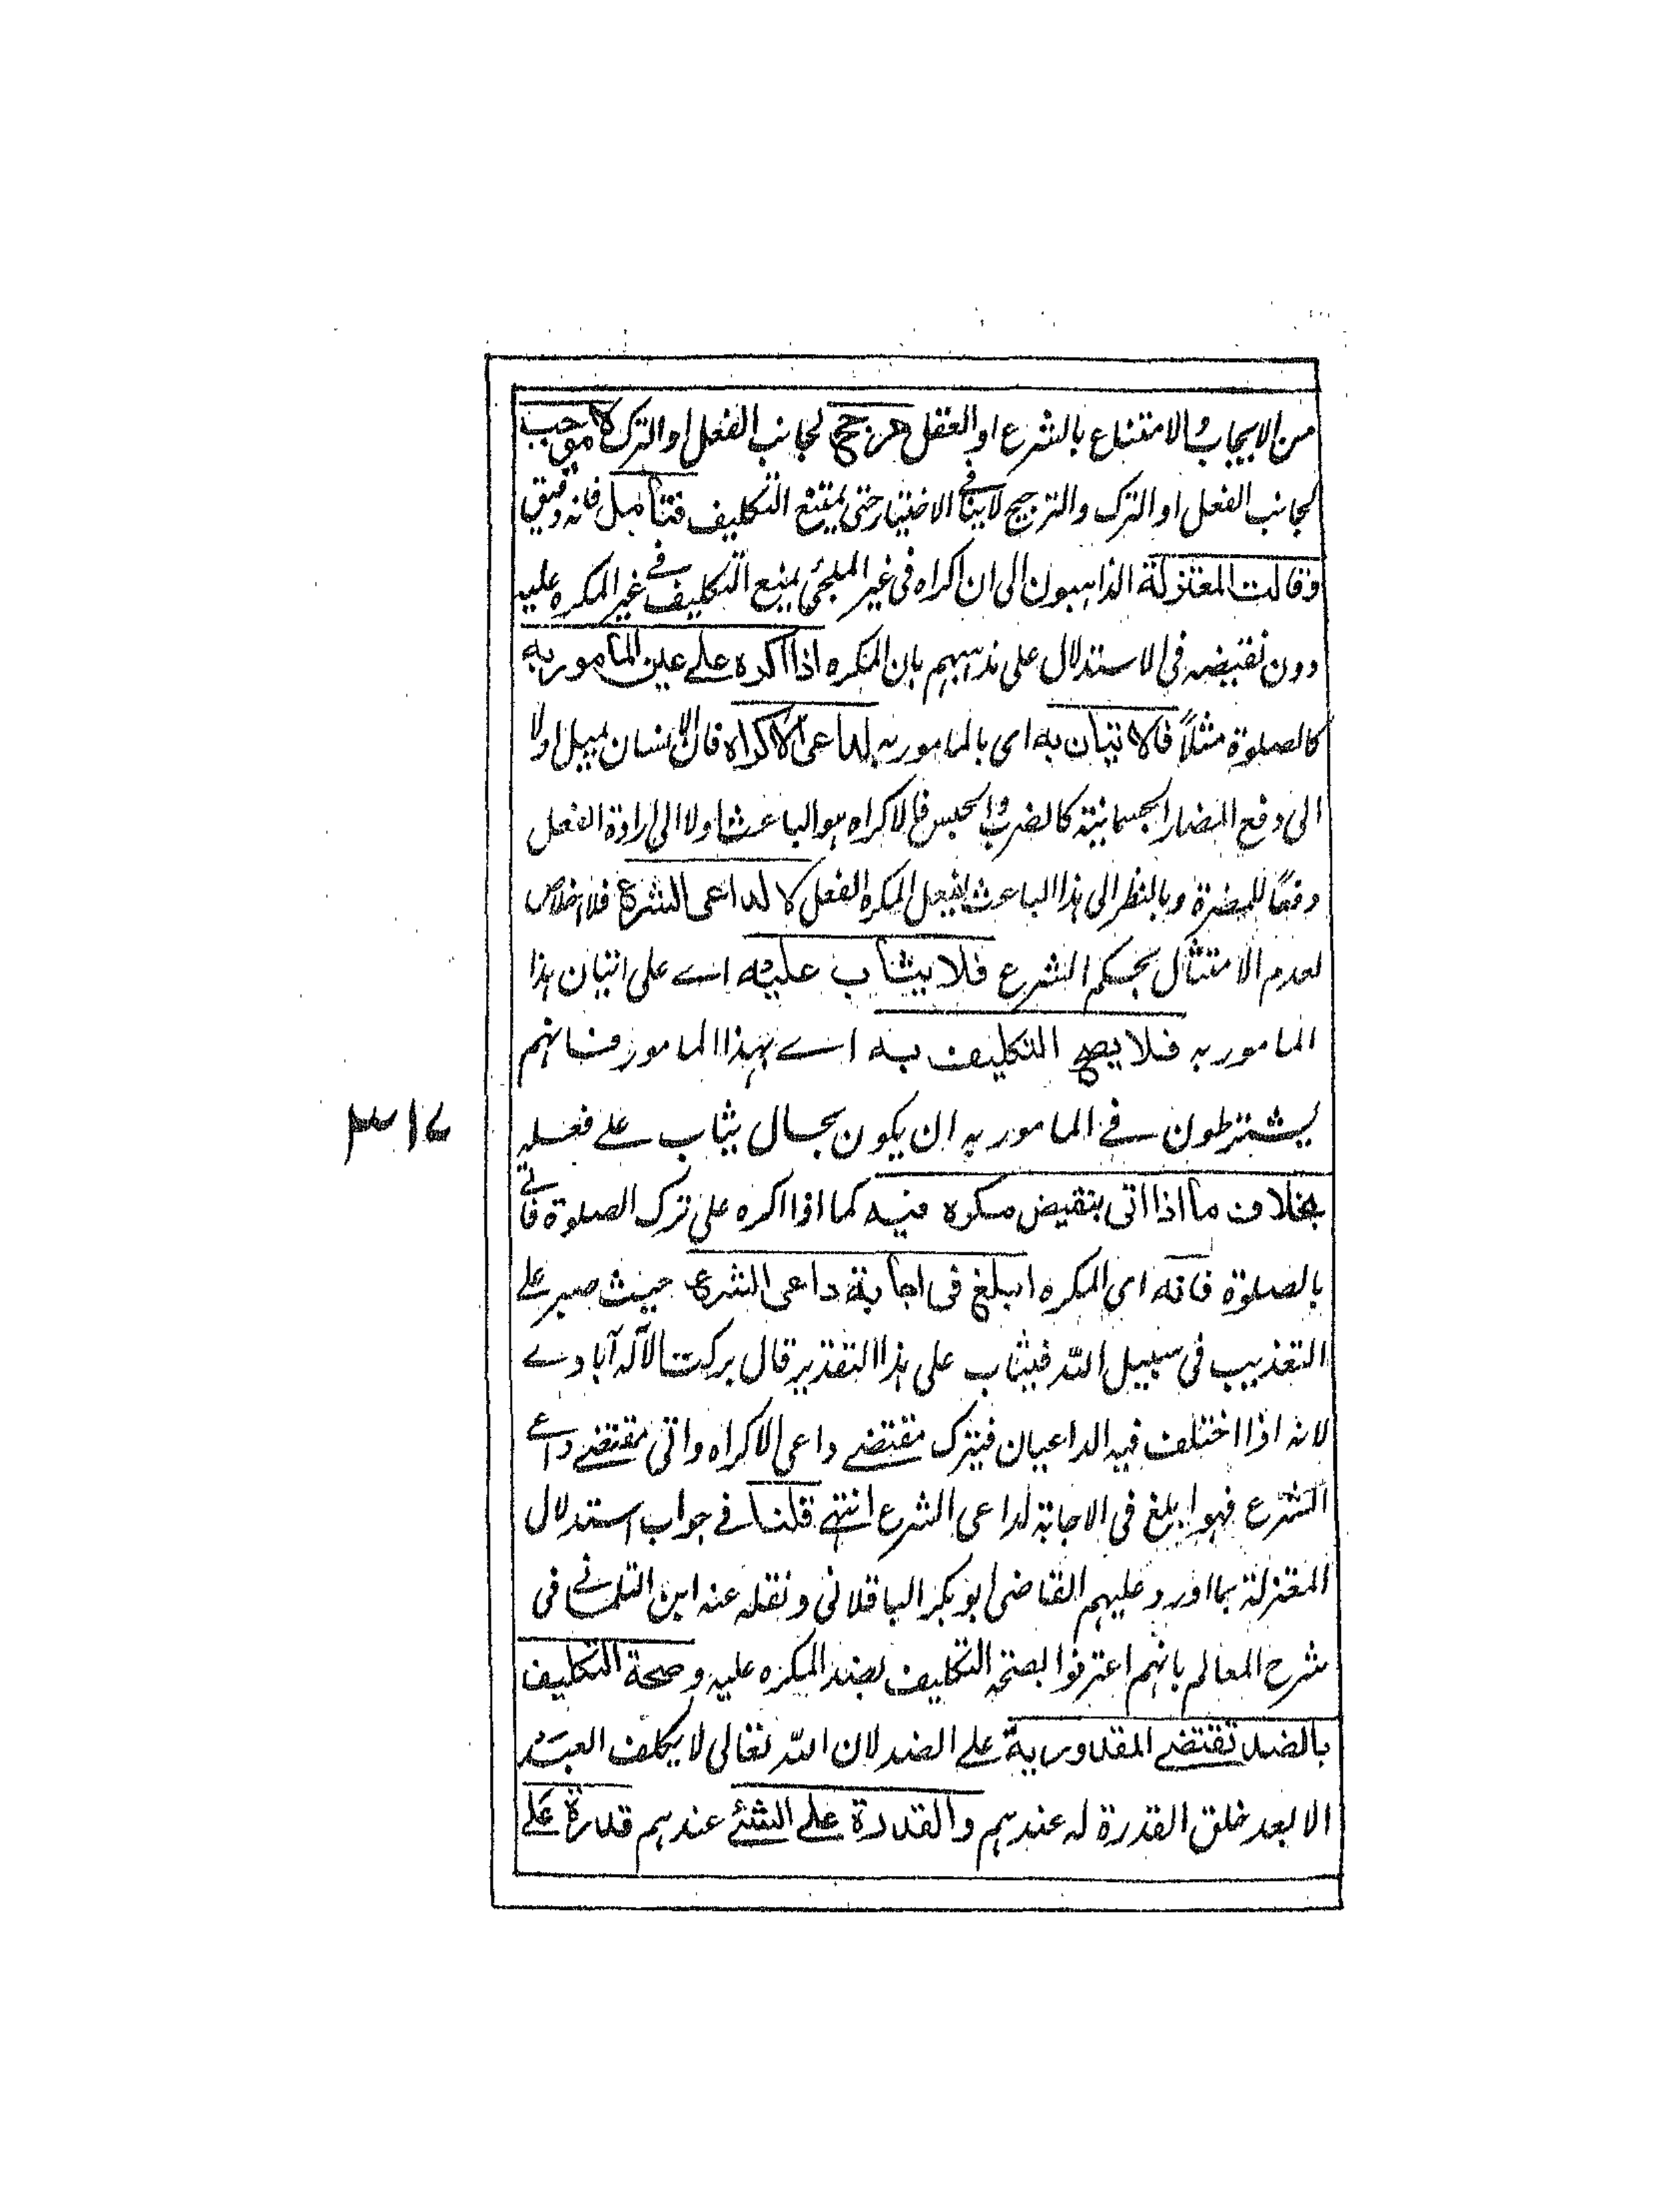 من الايجاب والامتناع بالشرع او العقل مرجح لجانب الفعل او الترك لا موجب
لجانب الفعل او الترك والترجيح لا ينافى الاختيار حتى يمتنع التكليف فتأمل فانه دقيق
وقالت المعتزلة الذاهبون الى ان اكراه فى غير الملجئ يمنع التكليف فى غير المكره عليه
دون نقيضه فى الاستدلال على مذهبهم بان المكره اذا اكره على عين المأمور به
كالصلوة مثلاً فالاتيان به اى بالمامور به لداعى الاكراه فان الانسان يميل اولا
الى دفع المضار الجسمانية كالضرب والحبس فالاكراه هو الباعث اولا الى ارادة الفعل
دفعًا للمضرة وبالنظر الى هذا الباعث يفعل المكره الفعل لا لداعى الشرع فلا اخلاص
لعدم الامتثال بحكم الشرع فلا يثاب عليه اے على اتيان هذا
المامور به فلا يصح التكليف به اے بهذا المامور فانهم
يشترطون فے المامور به ان يكون بحال يثاب علے فعله
بخلاف ما اذا اتى بنقيض مكره فيه كما اذا اكره على ترك الصلوة فاتى
بالصلوة فانه اى المكره ابلغ فى اجابة داعى الشرع حيث صبر علے
التعذيب فى سبيل الله فيثاب على هذا التقدير قال بركت الاله آبادے
لانه اذا اختلف فيه الداعيان فيترك مقتضے داعى الاكراه واتى مقتضے داعے
الشرع فهو ابلغ فى الاجابة لداعى الشرع انتهے قلنا فے جواب استدلال
المعتزلة بما اورد عليهم القاضى ابو بكر الباقلانى ونقله عنه ابن التلمسانے فى
شرح المعالم بانهم اعترفوا بصحة التكليف بضد المكره عليه وصحة التكليف
بالضد تقتضے المقدورية علے الضد لان الله تعالى لا يكلف العبد
الا بعد خلق القدرة له عندهم والقدرة علے الشئے عندهم قدرة علے
۳۱۷